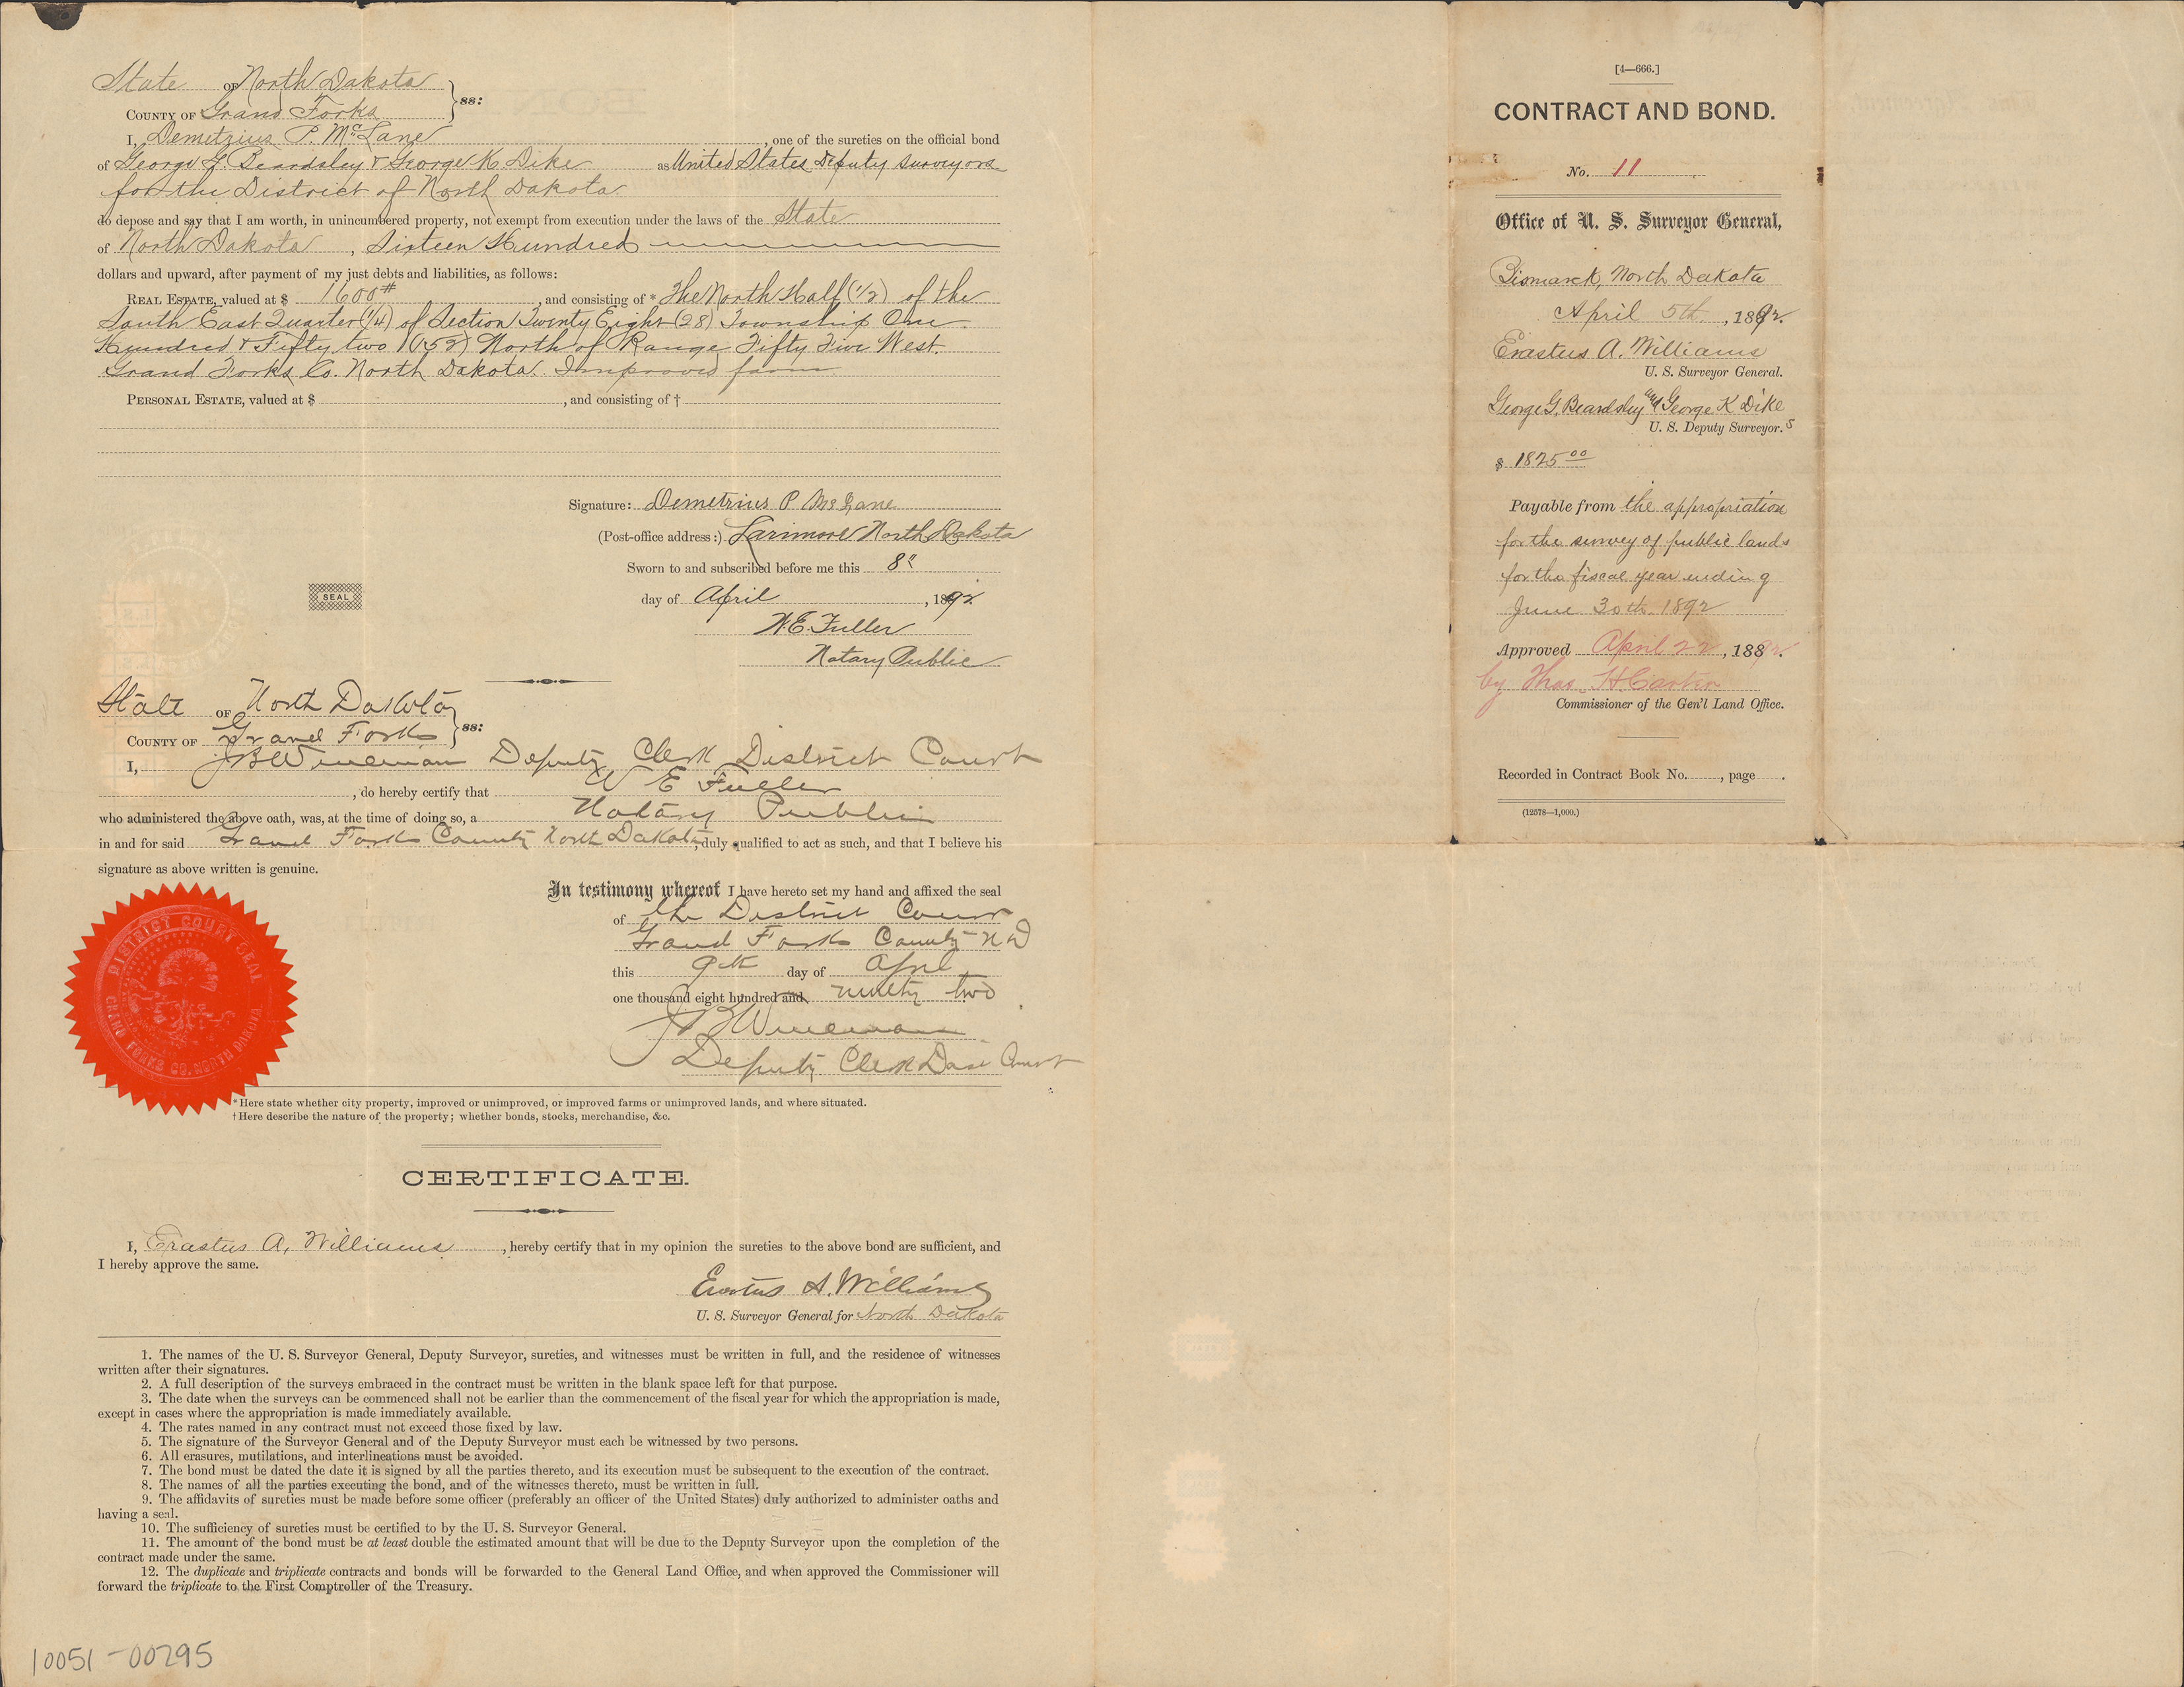 State OF North Dakota
COUNTY OF Grand Forks } ss:
I, Demetrius P. McLane, one of the sureties on the official bond
of George G. Beardsley & George K Dike as United States Deputy Surveyors
for the District of North Dakota
do depose and say that I am worth, in unincumbered property, not exempt from execution under the laws of the State
of North Dakota, Sixteen Hundred
dollars and upward, after payment of my just debts and liabilities, as follows:
REAL ESTATE, valued at $ 1600#, and consisting of * The North Half (1/2) of the
South East Quarter (1/4) of Section Twenty Eight (28) Township One
Hundred & Fifty two (152) North of Range Fifty Five West.
Grand Forks Co. North Dakota. Improved farm
PERSONAL ESTATE, valued at $ , and consisting of †
Signature: Demetrius P McLane
(Post-office address:) Larimore North Dakota
Sworn to and subscribed before me this 8"
day of April, 1892
SEAL
W.E. Fuller
Notary Public
State OF North Dakota
COUNTY OF Grand Forks } ss:
I, J B Wineman Deputy Clerk District Court
, do hereby certify that W E Fuller
who administered the above oath, was, at the time of doing so, a Notary Public
in and for said Grand Forks County North Dakota, duly qualified to act as such, and that I believe his
signature as above written is genuine.
In testimony whereof I have hereto set my hand and affixed the seal
of the District Court
Grand Forks County N D
this 9th day of April
one thousand eight hundred and ninety two
J B Wineman
Deputy Clerk Dist Court
DISTRICT COURT SEAL
GRAND FORKS CO. NORTH DAKOTA
* Here state whether city property, improved or unimproved, or improved farms or unimproved lands, and where situated.
† Here describe the nature of the property; whether bonds, stocks, merchandise, &c.
CERTIFICATE.
I, Erastus A. Williams, hereby certify that in my opinion the sureties to the above bond are sufficient, and
I hereby approve the same.
Erastus A. Williams
U. S. Surveyor General for North Dakota
1. The names of the U. S. Surveyor General, Deputy Surveyor, sureties, and witnesses must be written in full, and the residence of witnesses
written after their signatures.
2. A full description of the surveys embraced in the contract must be written in the blank space left for that purpose.
3. The date when the surveys can be commenced shall not be earlier than the commencement of the fiscal year for which the appropriation is made,
except in cases where the appropriation is made immediately available.
4. The rates named in any contract must not exceed those fixed by law.
5. The signature of the Surveyor General and of the Deputy Surveyor must each be witnessed by two persons.
6. All erasures, mutilations, and interlineations must be avoided.
7. The bond must be dated the date it is signed by all the parties thereto, and its execution must be subsequent to the execution of the contract.
8. The names of all the parties executing the bond, and of the witnesses thereto, must be written in full.
9. The affidavits of sureties must be made before some officer (preferably an officer of the United States) duly authorized to administer oaths and
having a seal.
10. The sufficiency of sureties must be certified to by the U. S. Surveyor General.
11. The amount of the bond must be at least double the estimated amount that will be due to the Deputy Surveyor upon the completion of the
contract made under the same.
12. The duplicate and triplicate contracts and bonds will be forwarded to the General Land Office, and when approved the Commissioner will
forward the triplicate to the First Comptroller of the Treasury.
10051-00795
[4—666.]
CONTRACT AND BOND.
No. 11
Office of U. S. Surveyor General,
Bismarck, North Dakota
April 5th, 1892.
Erastus A. Williams
U. S. Surveyor General.
George G. Beardsley and George K Dike
U. S. Deputy Surveyor.s
$ 1825 00
Payable from the appropriation
for the survey of public lands
for the fiscal year ending
June 30th 1892
Approved April 22, 1892.
by Thos. H. Carter
Commissioner of the Gen'l Land Office.
Recorded in Contract Book No. , page .
(12578—1,000.)